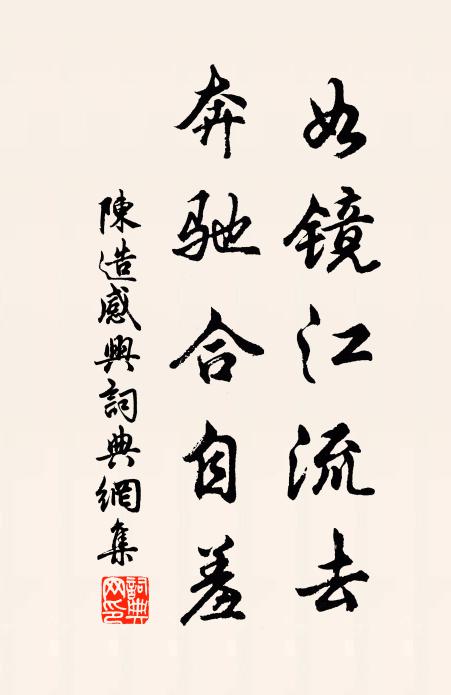 如镜江流去
奔驰合自羞
陳造感興詞典網集
詞典网印